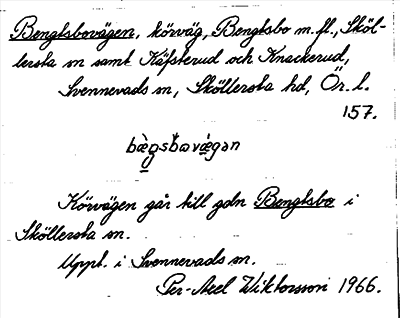 Bengtsbovägen, körväg, Bengtsbo m.fl., Sköl-
lersta sn samt Käfsterud och Knackerud,
Svennevads sn, Sköllersta hd, Ör. l.
157.
Körvägen går till gdn Bengtsbo i
Sköllersta sn.
Uppt. i Svennevads sn.
Per-Axel Wiktorsson 1966.